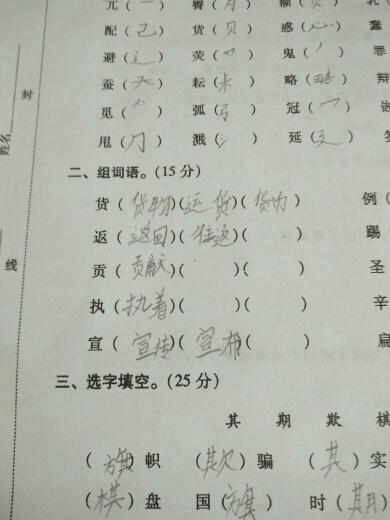 亢(一) 臀(月) 额(页) 乳
配(己) 货(贝) 惑(心) 蠢
避(辶) 荧(艹) 鬼(丿) 罪
蚕(天) 耘(耒) 略(略) 辩
觅(爫) 弧(弓) 冠(冖)
甩(冂) 溅(氵) 延(廴)
姓名
封
线
二、组词语。(15分)
货(货物)(运货)(货物) 例
返(返回)(往返)( ) 踢
贡(贡献)( )( ) 圣
执(执着)( )( ) 辛
宣(宣传)(宣布)( ) 扁
三、选字填空。(25分)
其 期 欺 棋
(旗)帜 (欺)骗 (其)实
(棋)盘 国(旗) 时(期)